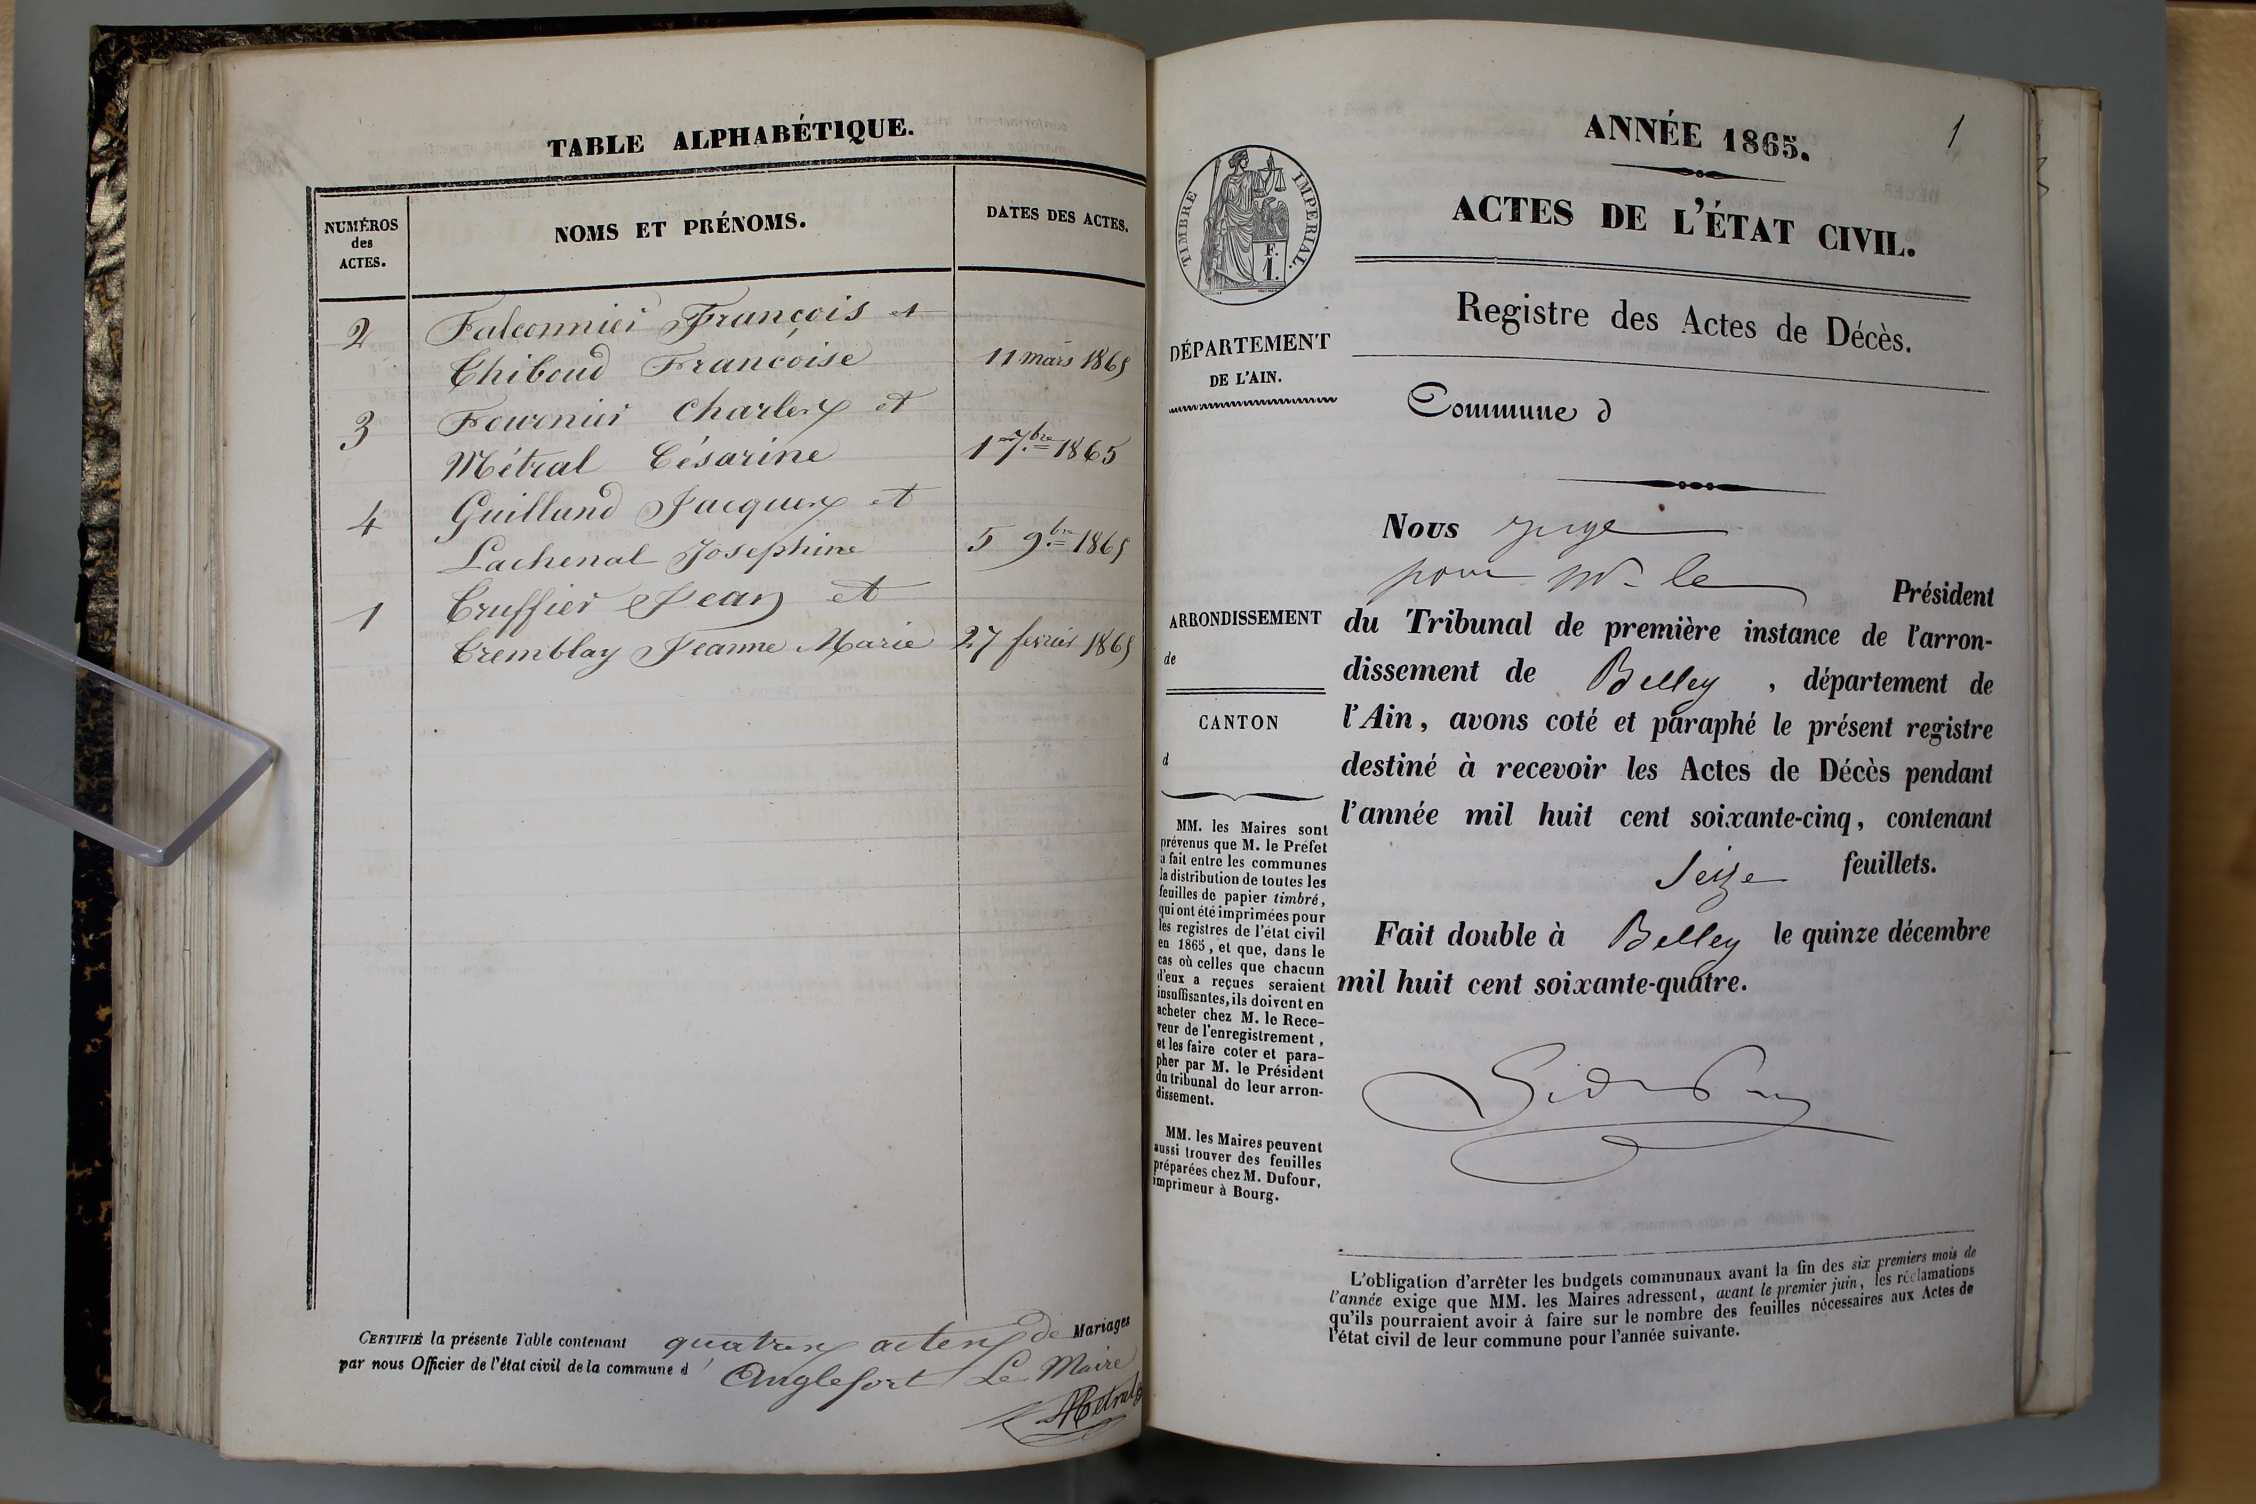 TABLE ALPHABÉTIQUE.
NUMÉROS
des
ACTES.
NOMS ET PRÉNOMS.
DATES DES ACTES.
2 Falconnier François et
Chiboud Françoise 11 mars 1865
3 Fournier Charles et
Métral Césarine 1er 7.bre 1865
4 Guilland Jacques et
Lachenal Josephine 5 9.bre 1865
1 Truffier Jean et
Tremblay Jeanne Marie 27 fevrier 1865
CERTIFIÉ la présente Table contenant quatres actes de Mariages
par nous Officier de l'état civil de la commune d' Anglefort Le Maire
Métral
1
ANNÉE 1865.
ACTES DE L'ÉTAT CIVIL.
Registre des Actes de Décès.
TIMBRE IMPERIAL.
F.
1.
DÉPARTEMENT
DE L'AIN.
Commune d
Nous juge
pour Mr le Président
du Tribunal de première instance de l'arron-
dissement de Belley, département de
l'Ain, avons coté et paraphé le présent registre
destiné à recevoir les Actes de Décès pendant
l'année mil huit cent soixante-cinq, contenant
Seize feuillets.
Fait double à Belley le quinze décembre
mil huit cent soixante-quatre.
ARRONDISSEMENT
de
CANTON
d
MM. les Maires sont
prévenus que M. le Préfet
a fait entre les communes
la distribution de toutes les
feuilles de papier timbré,
qui ont été imprimées pour
les registres de l'état civil
en 1865, et que, dans le
cas où celles que chacun
d'eux a reçues seraient
insuffisantes, ils doivent en
acheter chez M. le Rece-
veur de l'enregistrement,
et les faire coter et para-
pher par M. le Président
du tribunal de leur arron-
dissement.
MM. les Maires peuvent
aussi trouver des feuilles
préparées chez M. Dufour,
imprimeur à Bourg.
L'obligation d'arrêter les budgets communaux avant la fin des six premiers mois de
l'année exige que MM. les Maires adressent, avant le premier juin, les réclamations
qu'ils pourraient avoir à faire sur le nombre des feuilles nécessaires aux Actes de
l'état civil de leur commune pour l'année suivante.